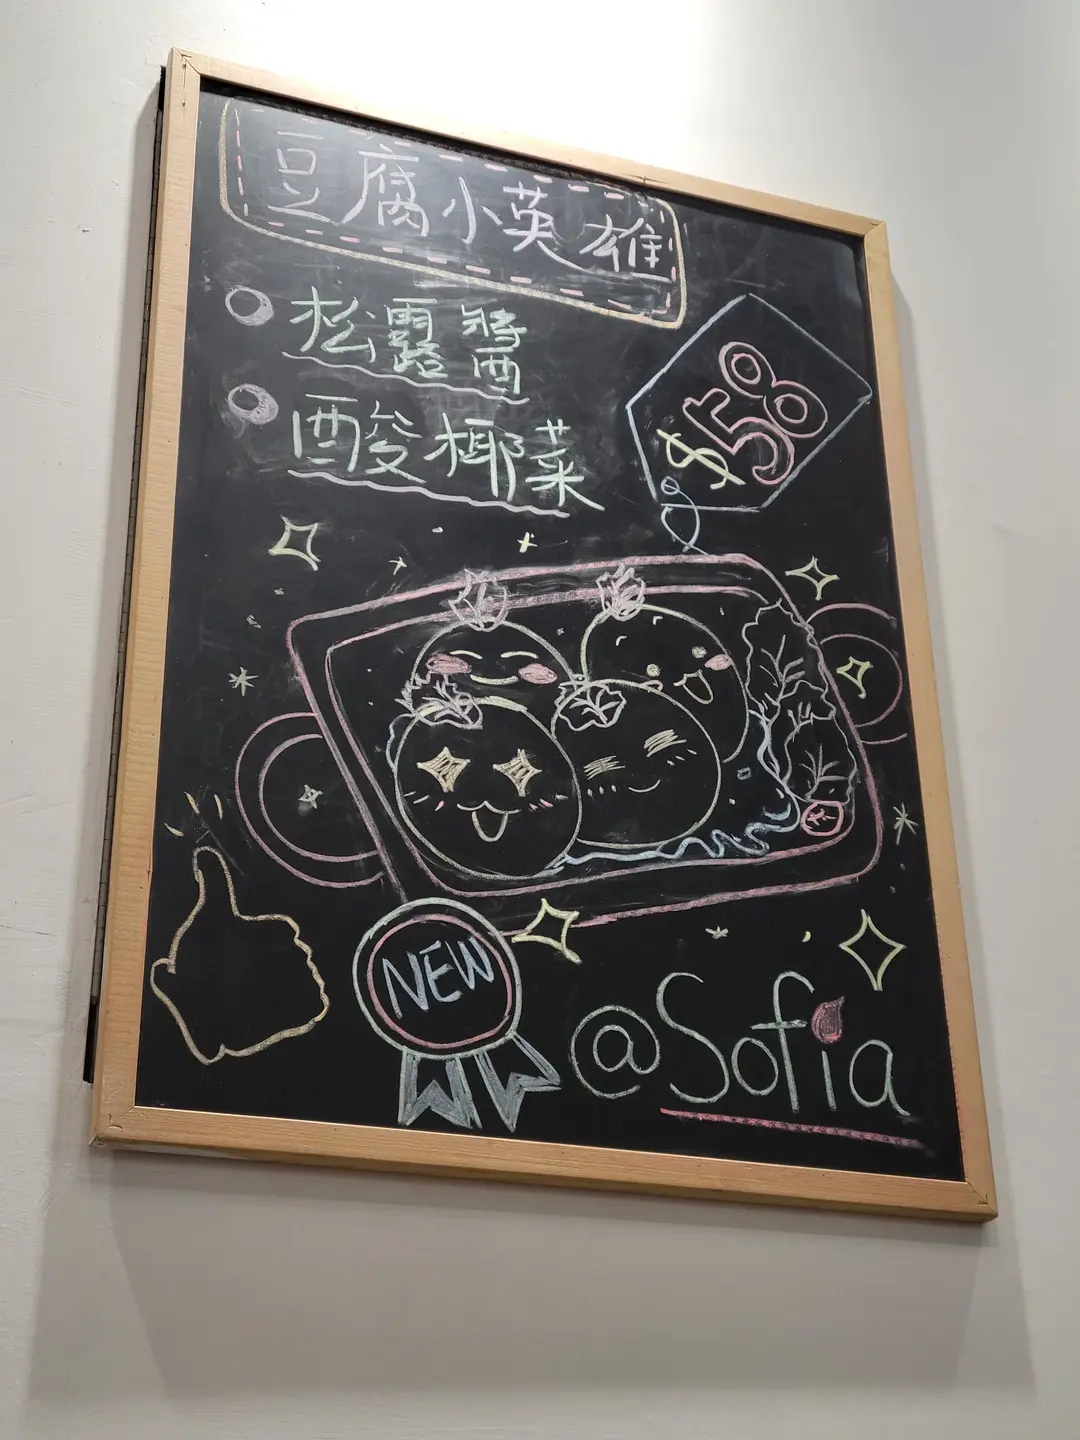 豆腐小英雄
松露醬
酸椰菜
$58
NEW
@Sofia